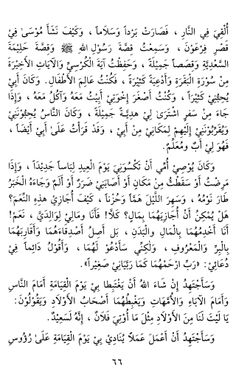 أُلْقِيَ فِي النَّارِ ، فَصَارَتْ بَرْداً وَسَلَاماً ، وَكَيْفَ نَشَأَ مُوسَى فِي
قَصْرِ فِرْعَوْنَ ، وَسَمِعْتُ قِصَّةَ رَسُولِ اللهِ ﷺ وَقِصَّةَ حَلِيمَةَ
السَّعْدِيَّةِ وَقَصَصاً جَمِيلَةً ، وَحَفِظْتُ آيَةَ الْكُرْسِيِّ وَالْآيَاتِ الْأَخِيرَةَ
مِنْ سُورَةِ الْبَقَرَةِ وَأَدْعِيَةً كَثِيرَةً ، فَكُنْتُ عَالِمَ الْأَطْفَالِ. وَكَانَ أَبِي
يُحِبُّنِي كَثِيراً ، وَكُنْتُ أَصْغَرَ إِخْوَتِي أَبِيتُ مَعَهُ وَآكُلُ مَعَهُ ، وَإِذَا
جَاءَ مِنْ سَفَرٍ اشْتَرَى لِي هَدِيَّةً جَمِيلَةً ، وَكَانَ النَّاسُ يُحِبُّونَنِي
وَيُقَرِّبُونَنِي إِلَيْهِمْ لِمَكَانِي مِنْ أَبِي ، وَقَدْ قَرَأْتُ عَلَى أَبِي أَيْضاً ،
فَهُوَ لِي أَبٌ وَمُعَلِّمٌ.
وَكَانَ يُوصِي أُمِّي أَنْ تَكْسُوَنِي يَوْمَ الْعِيدِ لِبَاساً جَدِيداً ، وَإِذَا
مَرِضْتُ أَوْ سَقَطْتُ مِنْ مَكَانٍ أَوْ أَصَابَنِي ضَرَرٌ أَوْ أَلَمٌ وَجَاءَهُ الْخَبَرُ
طَارَ نَوْمُهُ ، وَسَهِرَ اللَّيْلَ هَمّاً وَحُزْناً ، كَيْفَ أُجَازِي هَذِهِ النِّعَمَ؟
هَلْ يُمْكِنُ أَنْ أُجَازِيَهُمَا بِمَالٍ؟ كَلَّا! فَأَنَا وَمَالِي لِوَالِدَيَّ ، نَعَمْ!
أَنَا أَخْدُمُهُمَا بِالْمَالِ وَالْبَدَنِ ، بَلْ أَصِلُ أَصْدِقَاءَهُمَا وَأَقَارِبَهُمَا
بِالْبِرِّ وَالْمَعْرُوفِ ، وَلَكِنِّي سَأَدْعُو لَهُمَا ، وَأَقُولُ دَائِماً فِي
دُعَائِي: «رَبِّ ارْحَمْهُمَا كَمَا رَبَّيَانِي صَغِيراً».
وَسَأَجْتَهِدُ إِنْ شَاءَ اللهُ أَنْ يَغْتَبِطَا بِي يَوْمَ الْقِيَامَةِ أَمَامَ النَّاسِ
وَأَمَامَ الْآبَاءِ وَالْأُمَّهَاتِ وَيَغْبِطُهُمَا أَصْحَابُ الْأَوْلَادِ وَيَقُولُونَ:
يَا لَيْتَ لَنَا مِنَ الْأَوْلَادِ مِثْلَ مَا أُوتِيَ فُلَانٌ ، إِنَّهُ لَسَعِيدٌ.
وَسَأَجْتَهِدُ أَنْ أَعْمَلَ عَمَلاً يُنَادِي بِي يَوْمَ الْقِيَامَةِ عَلَى رُؤُوسِ
٦٦